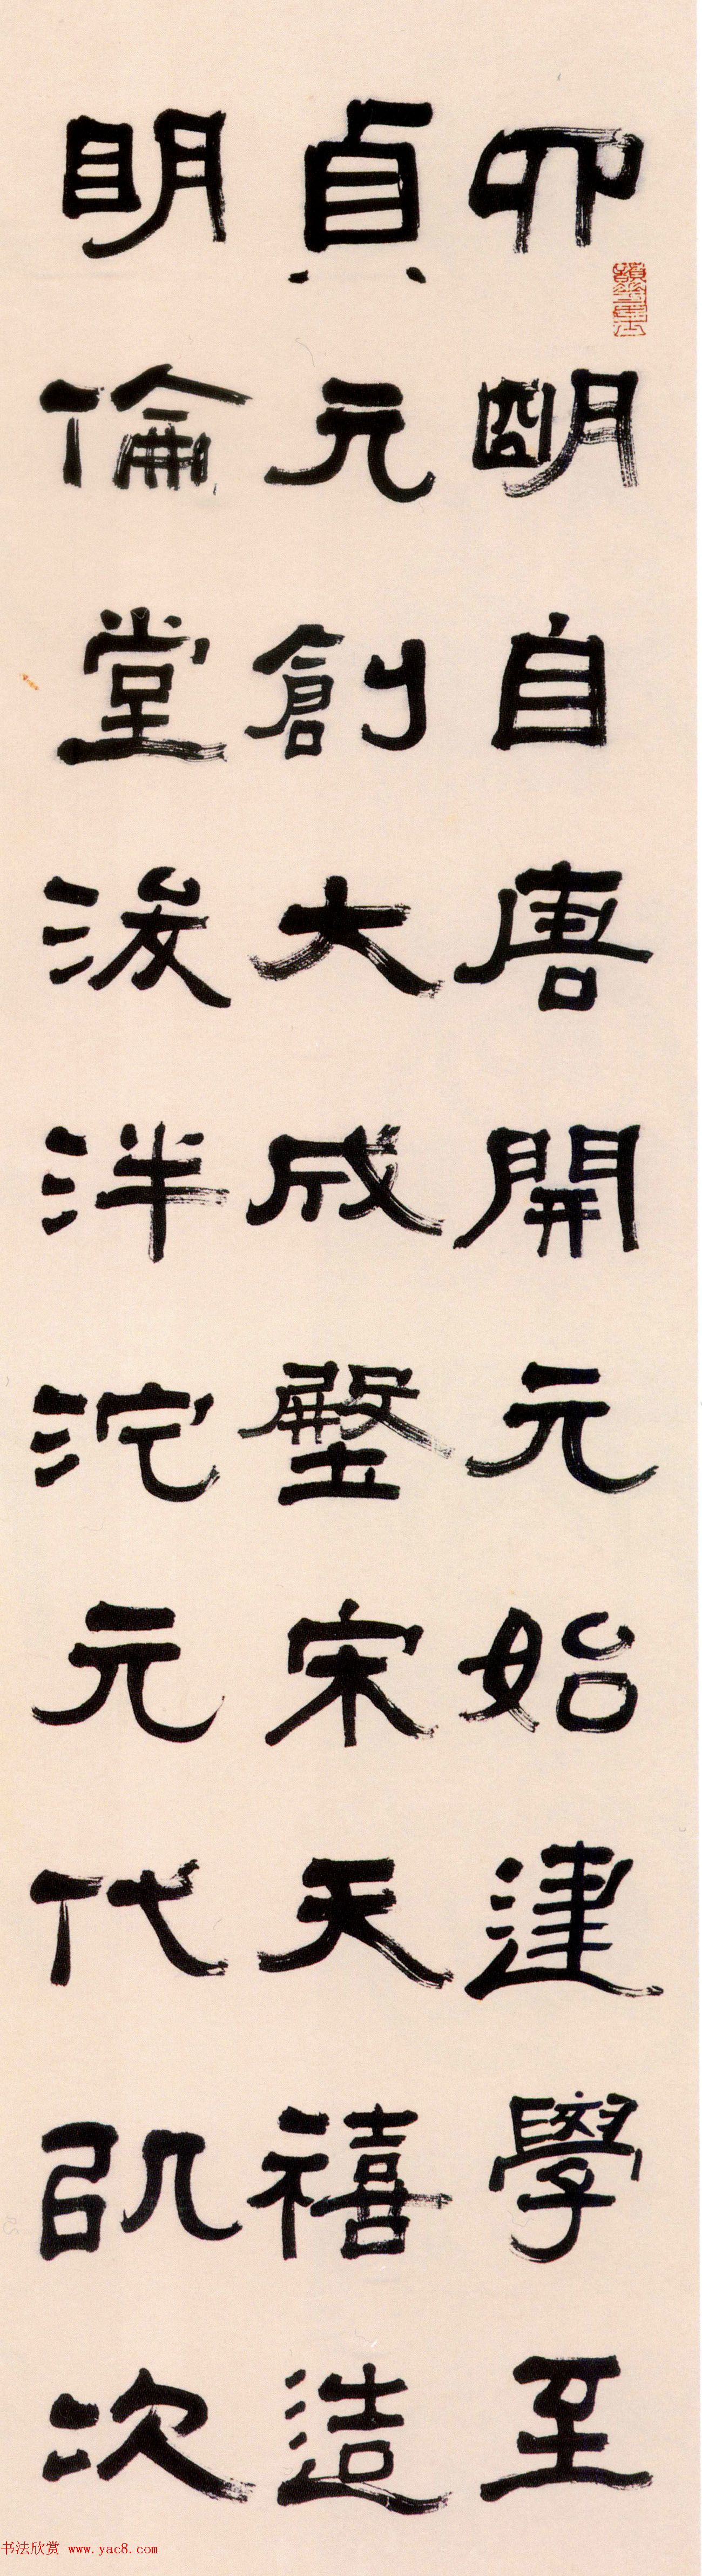 四朙自唐開元始建學至
貞元創大成殿宋天禧造
眀倫堂浚泮沱元代以次
书法欣赏 www.yac8.com